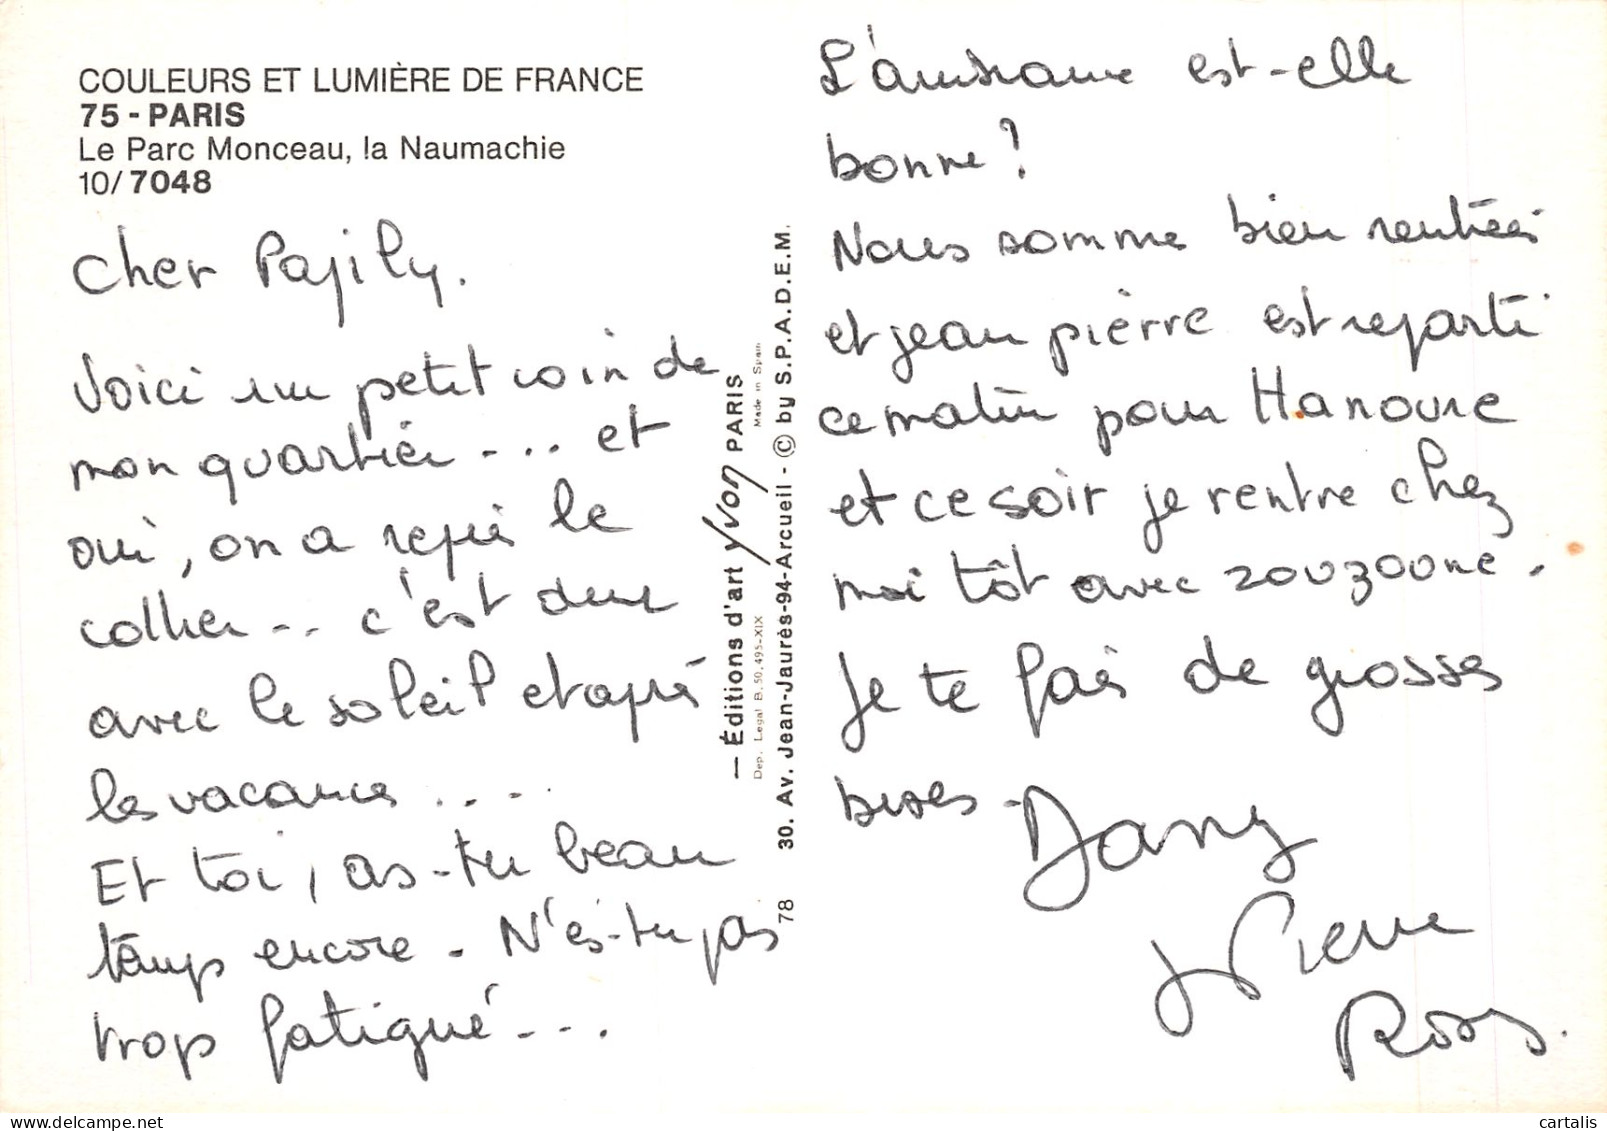 COULEURS ET LUMIÈRE DE FRANCE
75 - PARIS
Le Parc Monceau, la Naumachie
10/ 7048
Cher Papily.
Voici un petit coin de
mon quartier --.. et
oui, on a repris le
collier -.. c'est dur
avec le soleil et après
les vacances ....
Et toi, as-tu beau
temps encore - N'es-tu pas
trop fatigué ---
— Éditions d'art Yvon PARIS
Made in Spain
Dep. Legal B.50.495-XIX
78 30. Av. Jean-Jaurès-94-Arcueil - © by S.P.A.D.E.M.
L'ambiance est-elle
bonne ?
Nous somme bien rentrées
et jean pièrre est reparti
ce matin pour Hanovre
et ce soir je rentre chez
moi tôt avec zouzoune.
Je te fais de grosses
bises -
Dany
J Pierre
Rosy.